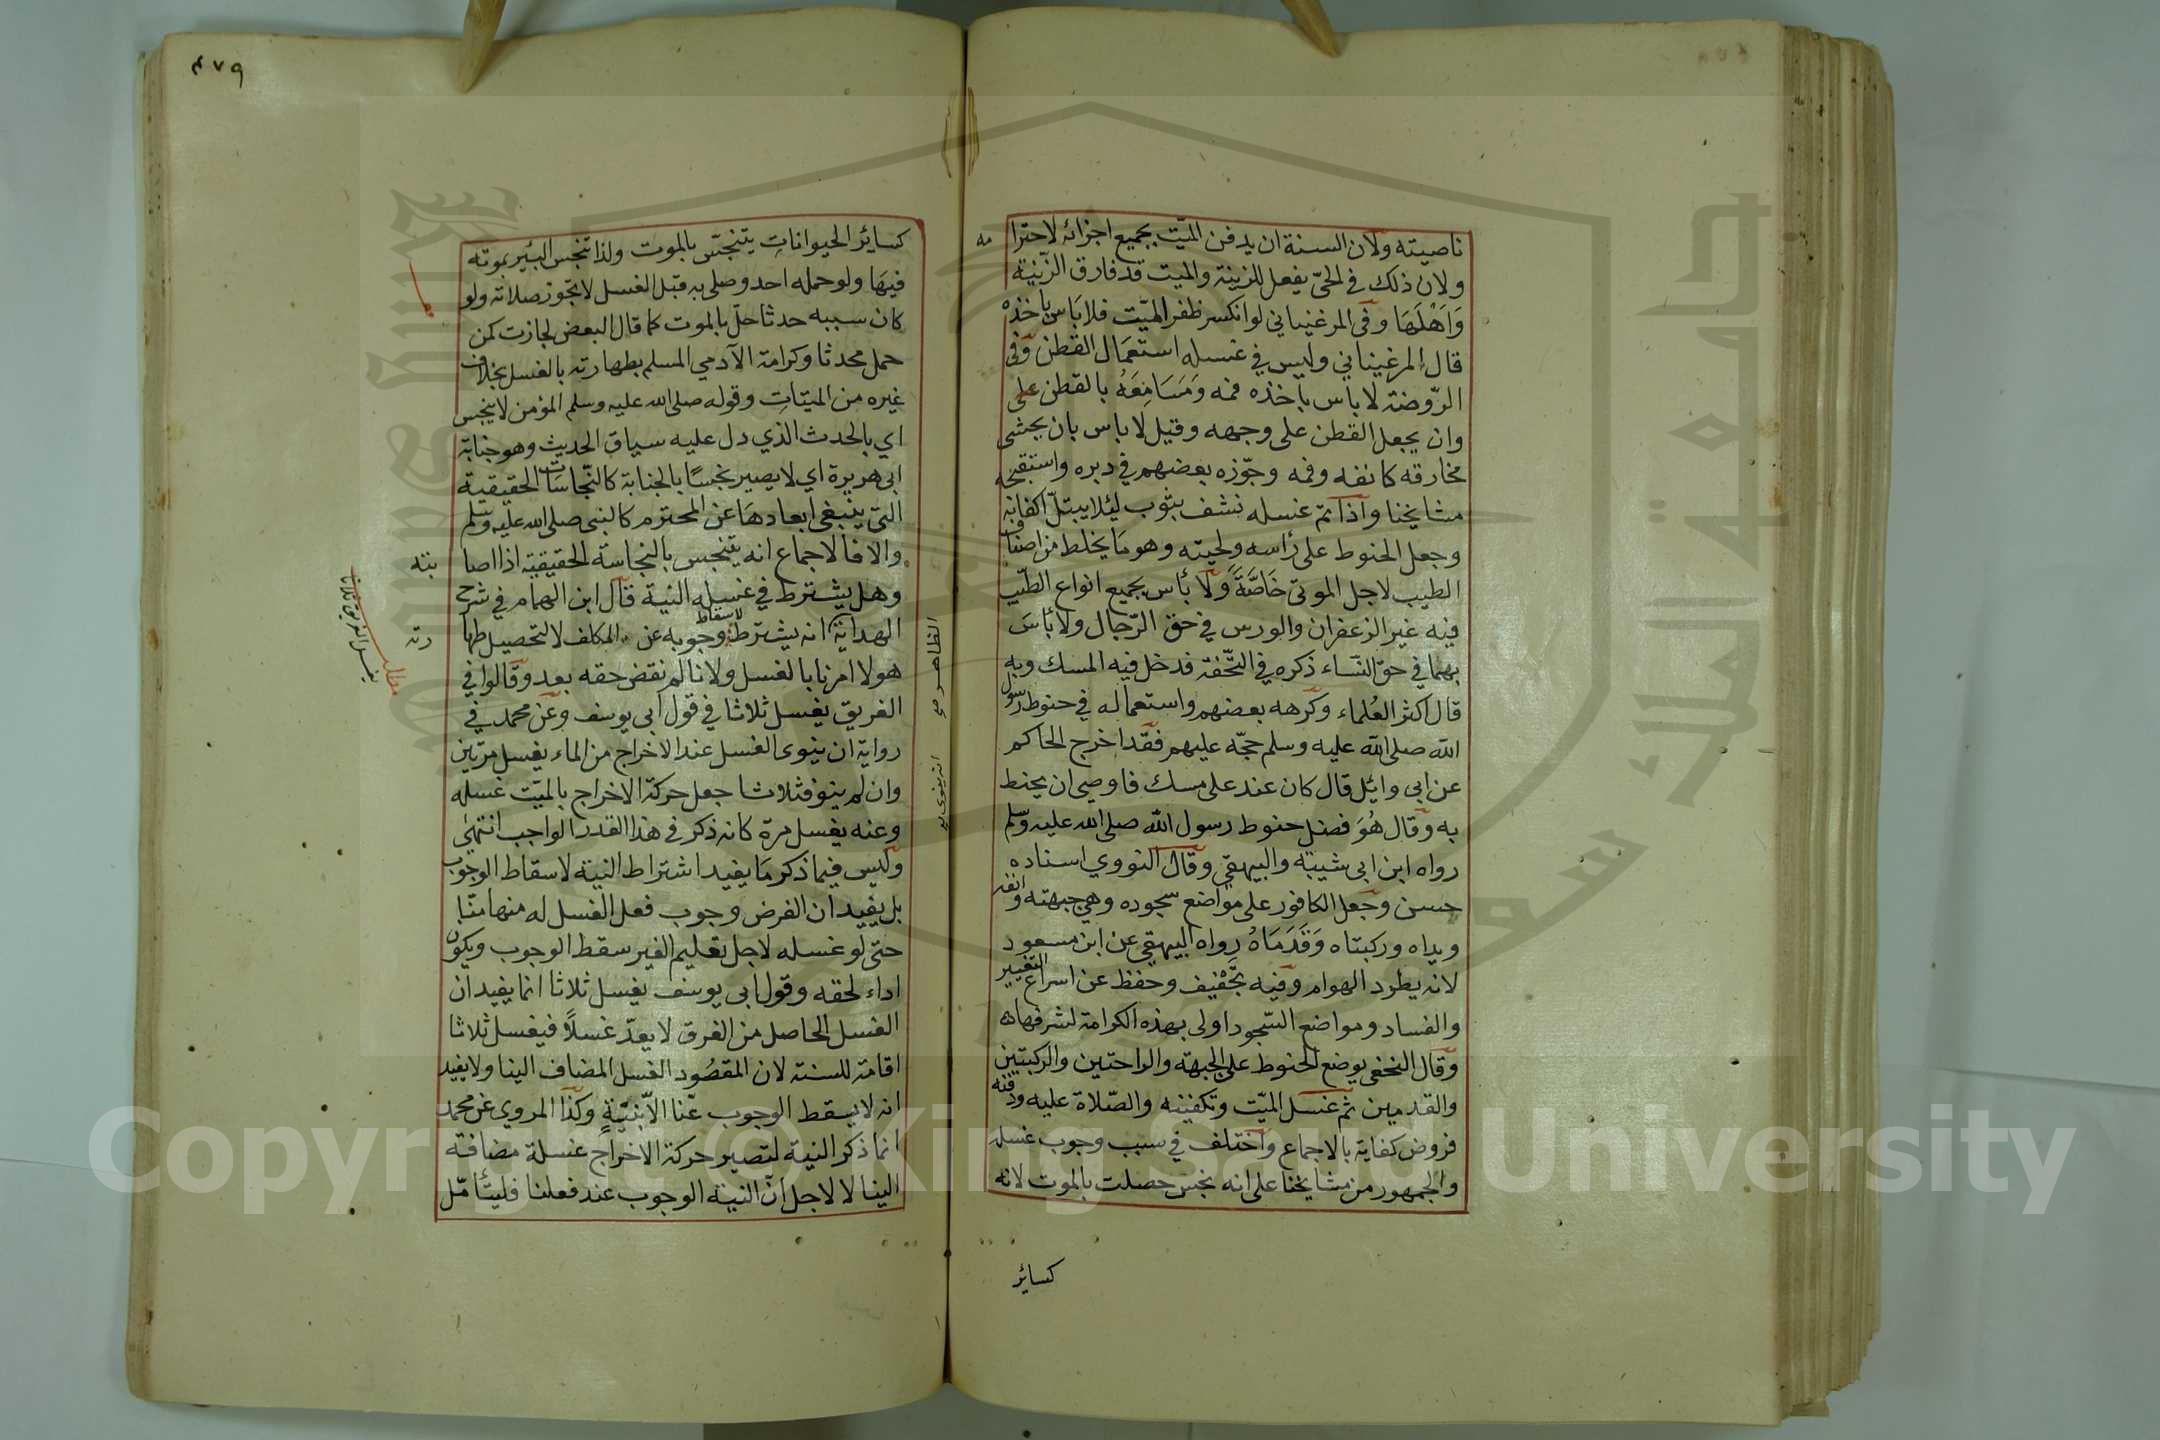 ناصيته ولان السنة ان يدفن الميّت بجميع اجزائه لاحترا
مه
ولان ذلك في الحيّ يفعل للزينة والميت قد فارق الزّينة
وَاَهْلَهَا وفى المرغيناني لو انكسر ظفر الميّت فلا باَس باخذه
قال المرغيناني وليس في غسله استعمَال القطن وفى
الرّوضة لا باس باخذه فمه وَمَسَامِعَهُ بالقطن على
وان يجعل القطن على وجهه وقيل لا باس بان يحشى
مخارقه كانفه وفمه وجوّزه بعضهم في دبره واستقبحه
مشايخنا واذا تم غسله نشف بثوب ليئلا يبتلّ اكفانه
وجعل الحنوط على رأسه ولحيته وهو مَا يخلط من اصناف
الطيب لاجل الموتى خَاصَّةَ وَلا بأس بجميع انواع الطّيب
فيه غير الزعفران والورس في حق الرّجال ولا بأسَ
بهما في حقّ النسّاء ذكره في التّحفة فدخل فيه المسك وبه
قال اكثر العُلماء وكرهه بعضهم واستعماله في حنوط رسول
الله صلى الله عليه وسلم حجّة عليهم فقد اخرج الحاكم
عن ابي وائل قال كان عند على مسك فاوصى ان يحنط
به وقال هُوَ فضل حنوط رسول الله صلى الله عليه وسلم
رواه ابن ابى شيبة والبيهقي وقال النووي اسناده
حسن وجعل الكافور على مواضع سجوده وهي جبهته وانفه
ويداه وركبتاه وَقَدَمَاهُ رواه البيهقي عن ابن مسعود
لانه يطرد الهوام وفيه تجْفيف وحفظ عن اسراع التغيير
والفساد ومواضع السّجود اولى بهذه الكرامة لشرفها ه
وقال النخعي يوضع الحنوط على الجبهة والراحتين والركبتين
والقدمين ثم غسل الميّت وتكفينه والصّلاة عليه ودفنه
فروض كفاية بالاجماع واختلف في سبب وجوب غسله
والجمهور من مشايخنا على انه نجس حصلت بالموت لانه
كسائر
٤٧٩
كسائر الحيوانات يتنجّس بالموت ولذا تنجس البئير بموته
فيهَا ولو حمله احد وصلى به قبل الغسل لا تجوز صلاته ولو
كان سببه حدثا حلّ بالموت كما قال البعض لجازت كمن
حمل محدثا وكرامة الآدمي المسلم بطهارته بالغسل بخلاف
غيره من الميتات وقوله صلى الله عليه وسلم المؤمن لا ينجس
اي بالحدث الذي دل عليه سياق الحديث وهو جنابة
ابى هريرة اي لا يصير نجسًا بالجنابة كالنّجاسَات الحقيقية
التى ينبغى ابعادهَا عن المحترم كالنبى صلى الله عليه وسلم
والا فالاجماع انه يتنجس بالنجاسة الحقيقية اذا اصا
بته
وهل يشترط في غسله النية قال ابن الهمام في شرح
الهداية انه يشترط لاسقاط وجوبه عن المكلف لا لتحصيل طها
رته
هو لا امرنا بالغسل ولانا لم نقض حقه بعد وقالوا في
الغريق يغسل ثلاثا في قول ابى يوسف وعن محمد في
رواية ان ينوى الغسل عند الاخراج من الماء يغسل مرّتين
وان لم ينو فثلاثا جعل حركة الاخراج بالميّت غسله
وعنه يغسل مرة كانه ذكر في هذا القدر الواجب انتهى
وليس فيما ذكر مَا يفيد اشتراط النية لاسقاط الوجوب
بل يفيد ان الفرض وجوب فعل الغسل له منها منّا
حتى لو غسله لاجل تعليم الغير سقط الوجوب ويكون
اداء لحقه وقول ابى يوسف يغسل ثلاثا انما يفيد ان
الغسل الحاصل من الغرق لا يعدّ غسلاً فيغسل ثلاثا
اقامة للسنة لان المقصُود الغسل المضاف الينا ولا يفيد
انه لا يسقط الوجوب عنّا الاّ بنيّةٍ وكذا المروي عن محمد
انما ذكر النية لتصير حركة الاخراج غسلة مضافة
الينا لا لاجل انّ النية الوجوب عند فعلنا فليتأمّل
الظاهر
مطلب
يغسل الغريق ثلاثا
Copyright © King Saud University
جامعة الملك سعود